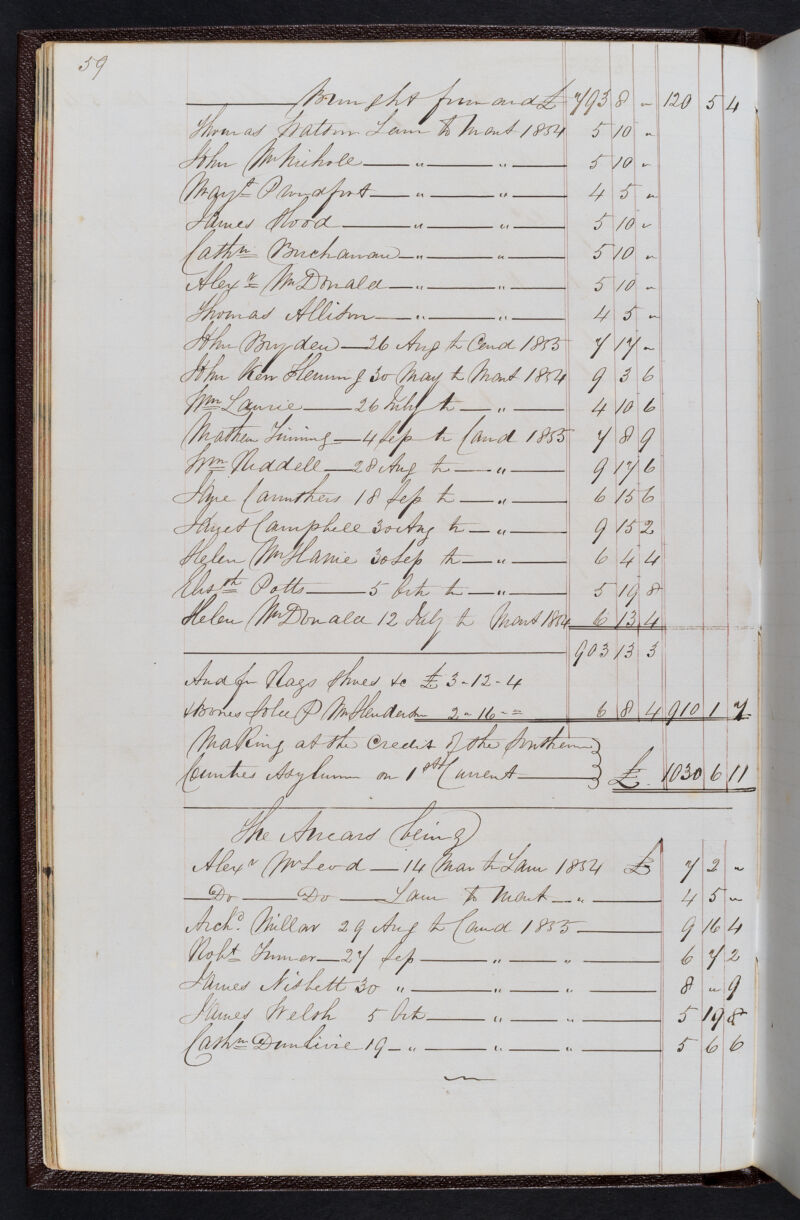 59
Brought forward £ 793 8 " 120 5 4
Thomas Watson Lam to Mart 1854 5 10 "
John McNichole — " — " — 5 10 "
Margt — " — " — 4 5 "
James Hood — " — " — 5 10 "
Cathn Buchanan — " — " — 5 10 "
Alexr McDonald — " — " — 5 10 "
Thomas Allison — " — " — 4 5 "
John Bryden — 26 Aug to Cand 1855 7 17 "
John Kerr Fleming 30 May to Mart 1854 9 3 6
Wm Laurie — 26 July to — " — 4 10 6
Mathew Tinning — 4 Sep to Cand 1855 7 8 9
Wm Riddell — 28 Aug to — " — 9 17 6
Jane Carruthers 18 Sep to — " — 6 15 6
Janet Campbell 30 Aug to — " — 9 15 2
Helen 30 Sep to — " — 6 4 4
Elizth Potts — 5 Oct to — " — 5 19 8
Helen McDonald 12 July to Mart 1854 6 13 4
903 13 3
And for Rags Shoes &c £ 3-12-4
& Bones Sold P McHenderson 2-16-= 6 8 4 910 1 7
Making at the Credit of the Southern
Counties Asylum on 1st Current — £ 1030 6 11
The Arrears being
Alexr McLeod — 14 Mar to Lam 1854 £ 7 2 "
Do — Do — Lam to Mart — " — 4 5 "
Archd. Millar 29 Aug to Cand 1855 — 9 16 4
Robt Turner — 27 Sep — " — " — 6 7 2
James Nisbett 30 " — " — " — 8 " 9
James Welsh 5 Oct — " — " — 5 19 8
Cathn Dunlivie 19 — " — " — " — 5 6 6